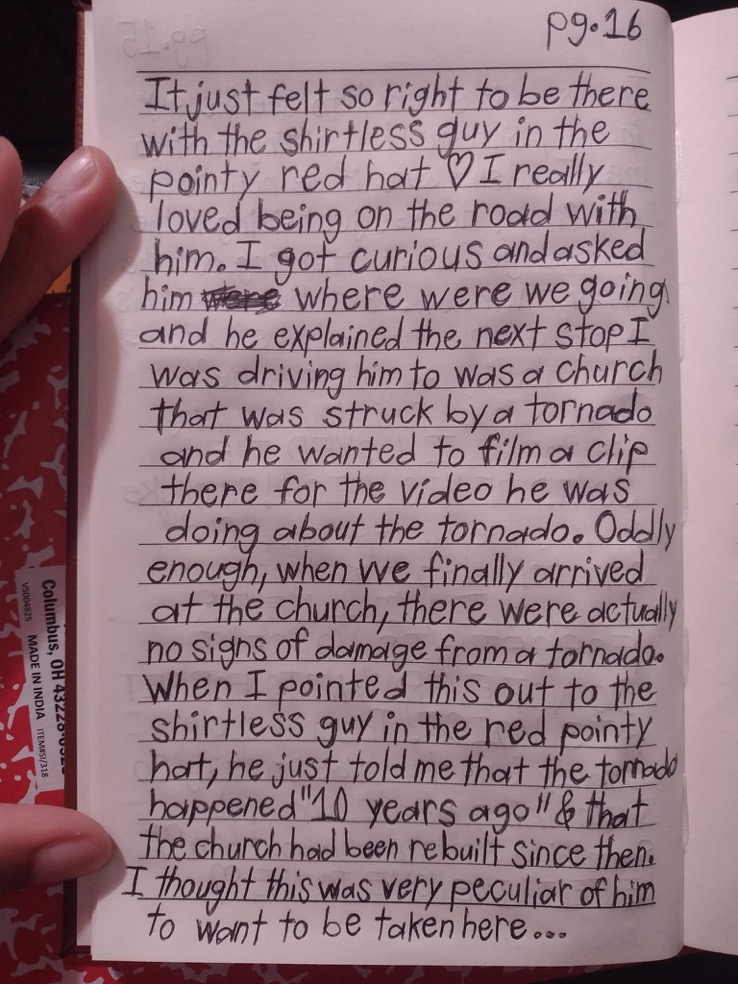 pg.16
It just felt so right to be there
with the shirtless guy in the
pointy red hat ♡ I really
loved being on the road with
him. I got curious and asked
him where were we going
and he explained the next stop I
was driving him to was a church
that was struck by a tornado
and he wanted to film a clip
there for the video he was
doing about the tornado. Oddly
enough, when we finally arrived
at the church, there were actually
no signs of damage from a tornado.
When I pointed this out to the
shirtless guy in the red pointy
hat, he just told me that the tornado
happened "10 years ago" & that
the church had been rebuilt since then.
I thought this was very peculiar of him
to want to be taken here...
Columbus, OH 43228-
VS004825 MADE IN INDIA ITEM#SI/318